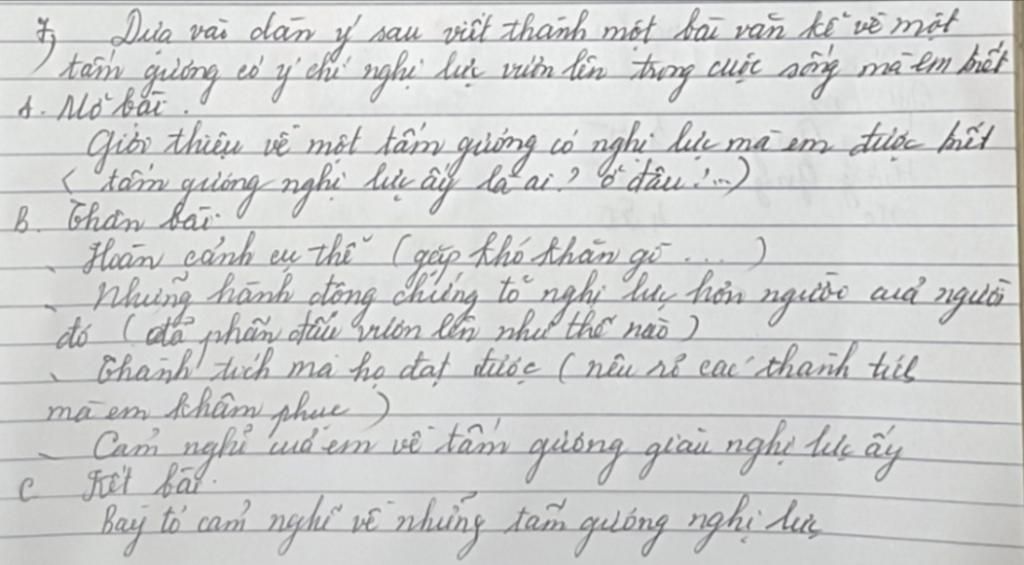 7, Dựa vào dàn ý sau viết thành một bài văn kể về một
tấm gương có ý chí nghị lực vươn lên trong cuộc sống mà em biết
A. Mở bài.
Giới thiệu về một tấm gương có nghị lực mà em được biết
( tấm gương nghị lực ấy là ai? ở đâu?...)
B. Thân bài.
- Hoàn cảnh cụ thể (gặp khó khăn gì ... )
- Những hành động chứng tỏ nghị lực hơn người của người
đó (đã phấn đấu vươn lên như thế nào)
- Thành tích mà họ đạt được (nêu rõ các thành tích
mà em khâm phục)
- Cảm nghĩ của em về tấm gương giàu nghị lực ấy
C Kết bài.
Bày tỏ cảm nghĩ về những tấm gương nghị lực